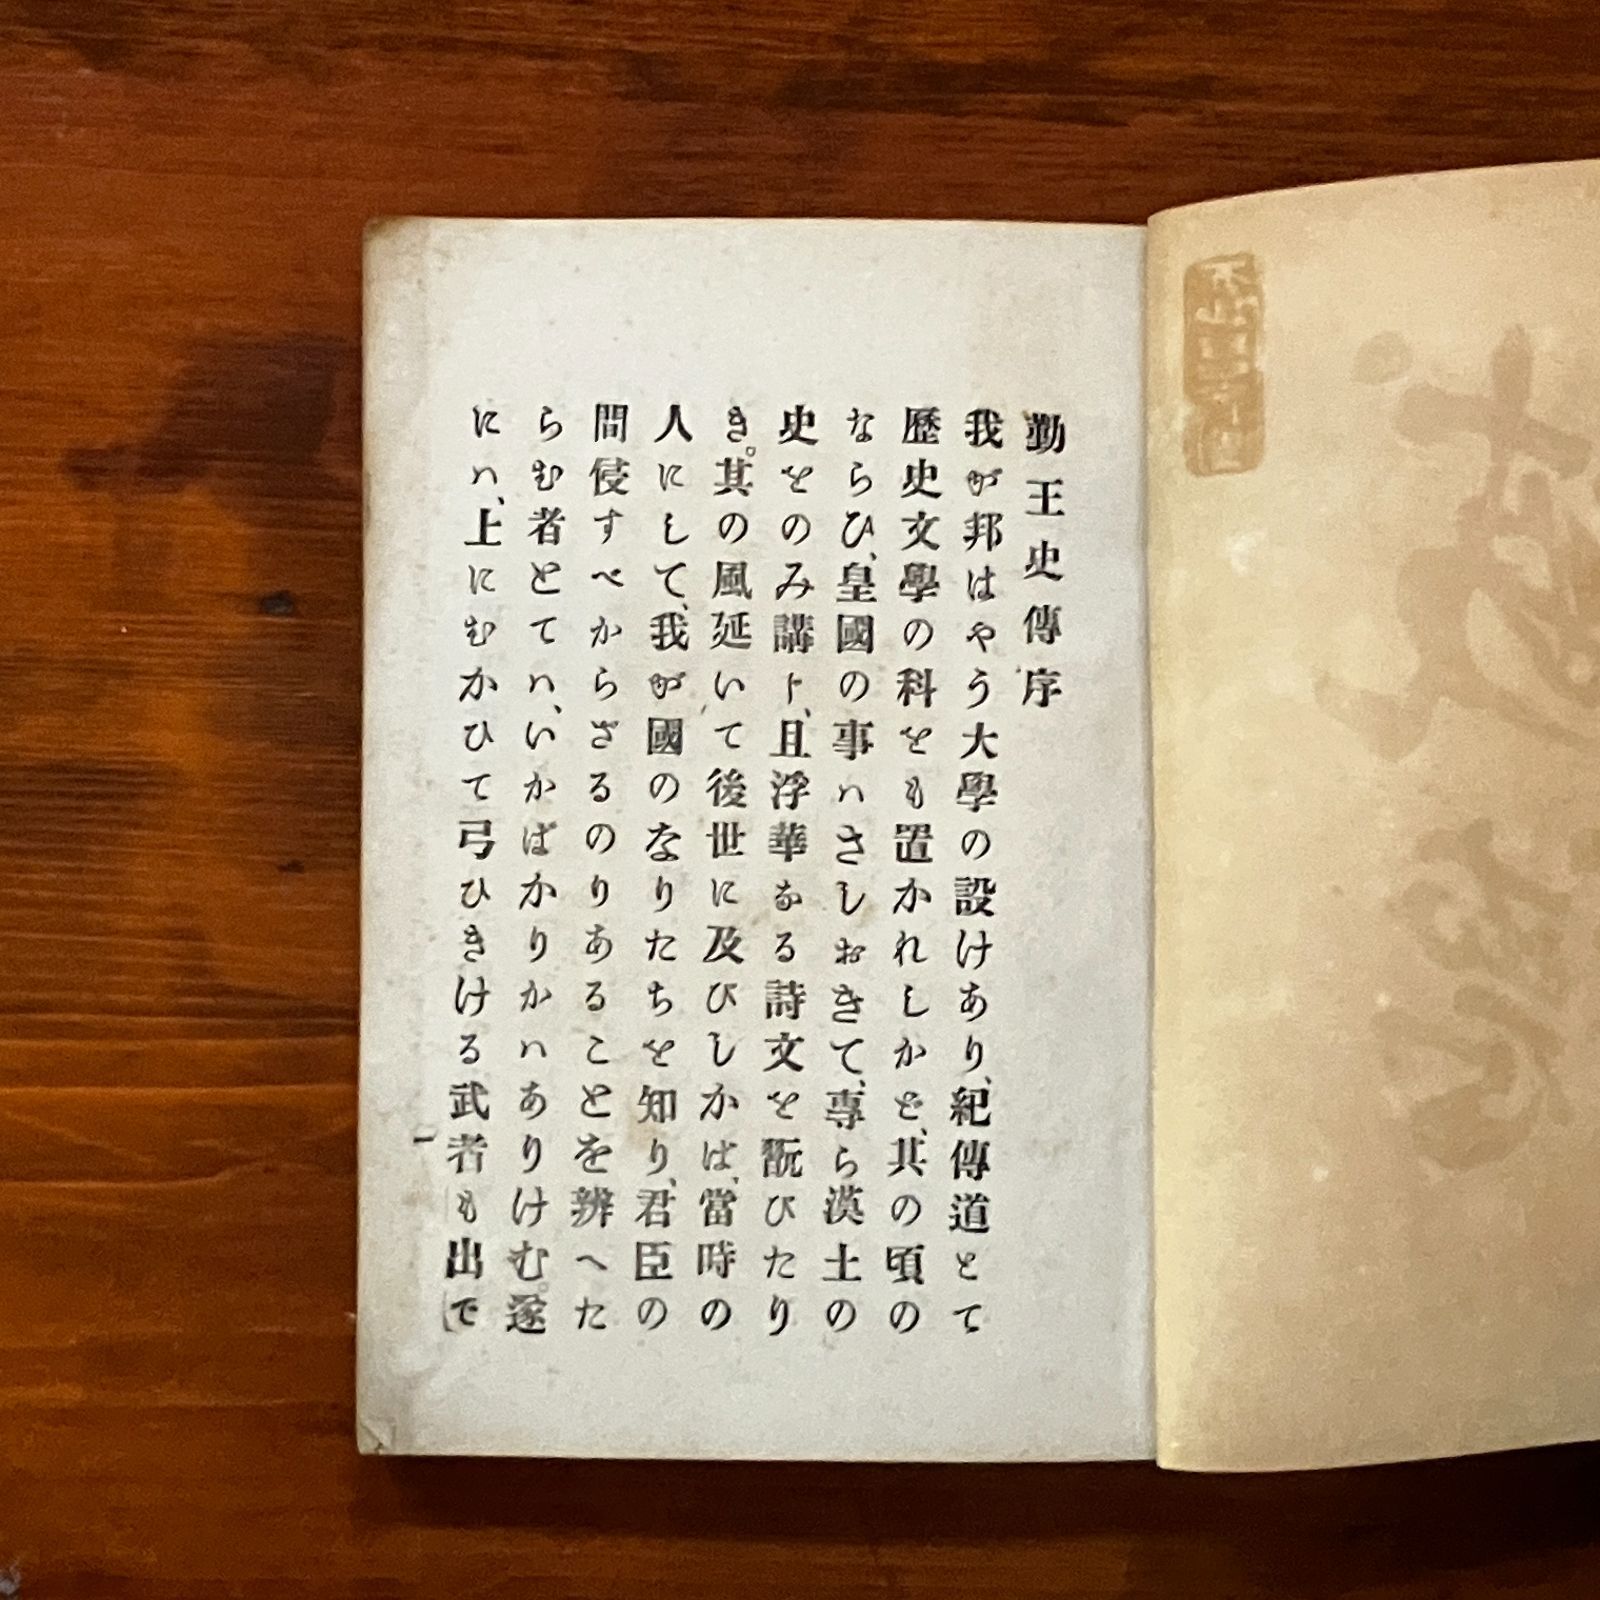 勤王史傳序
我が邦はやう大學の設けあり、紀傳道とて
歷史文學の科をも置かれしかど、其の頃の
ならひ、皇國の事ハさしおきて、專ら漢土の
史をのみ講じ、且浮華なる詩文を翫びたり
き。其の風延いて後世に及びしかば、當時の
人にして、我が國のなりたちを知り、君臣の
間侵すべからざるのりあることを辨へた
らむ者とてハ、いかばかりかハありけむ。遂
にハ、上にむかひて弓ひきける武者も出で
一